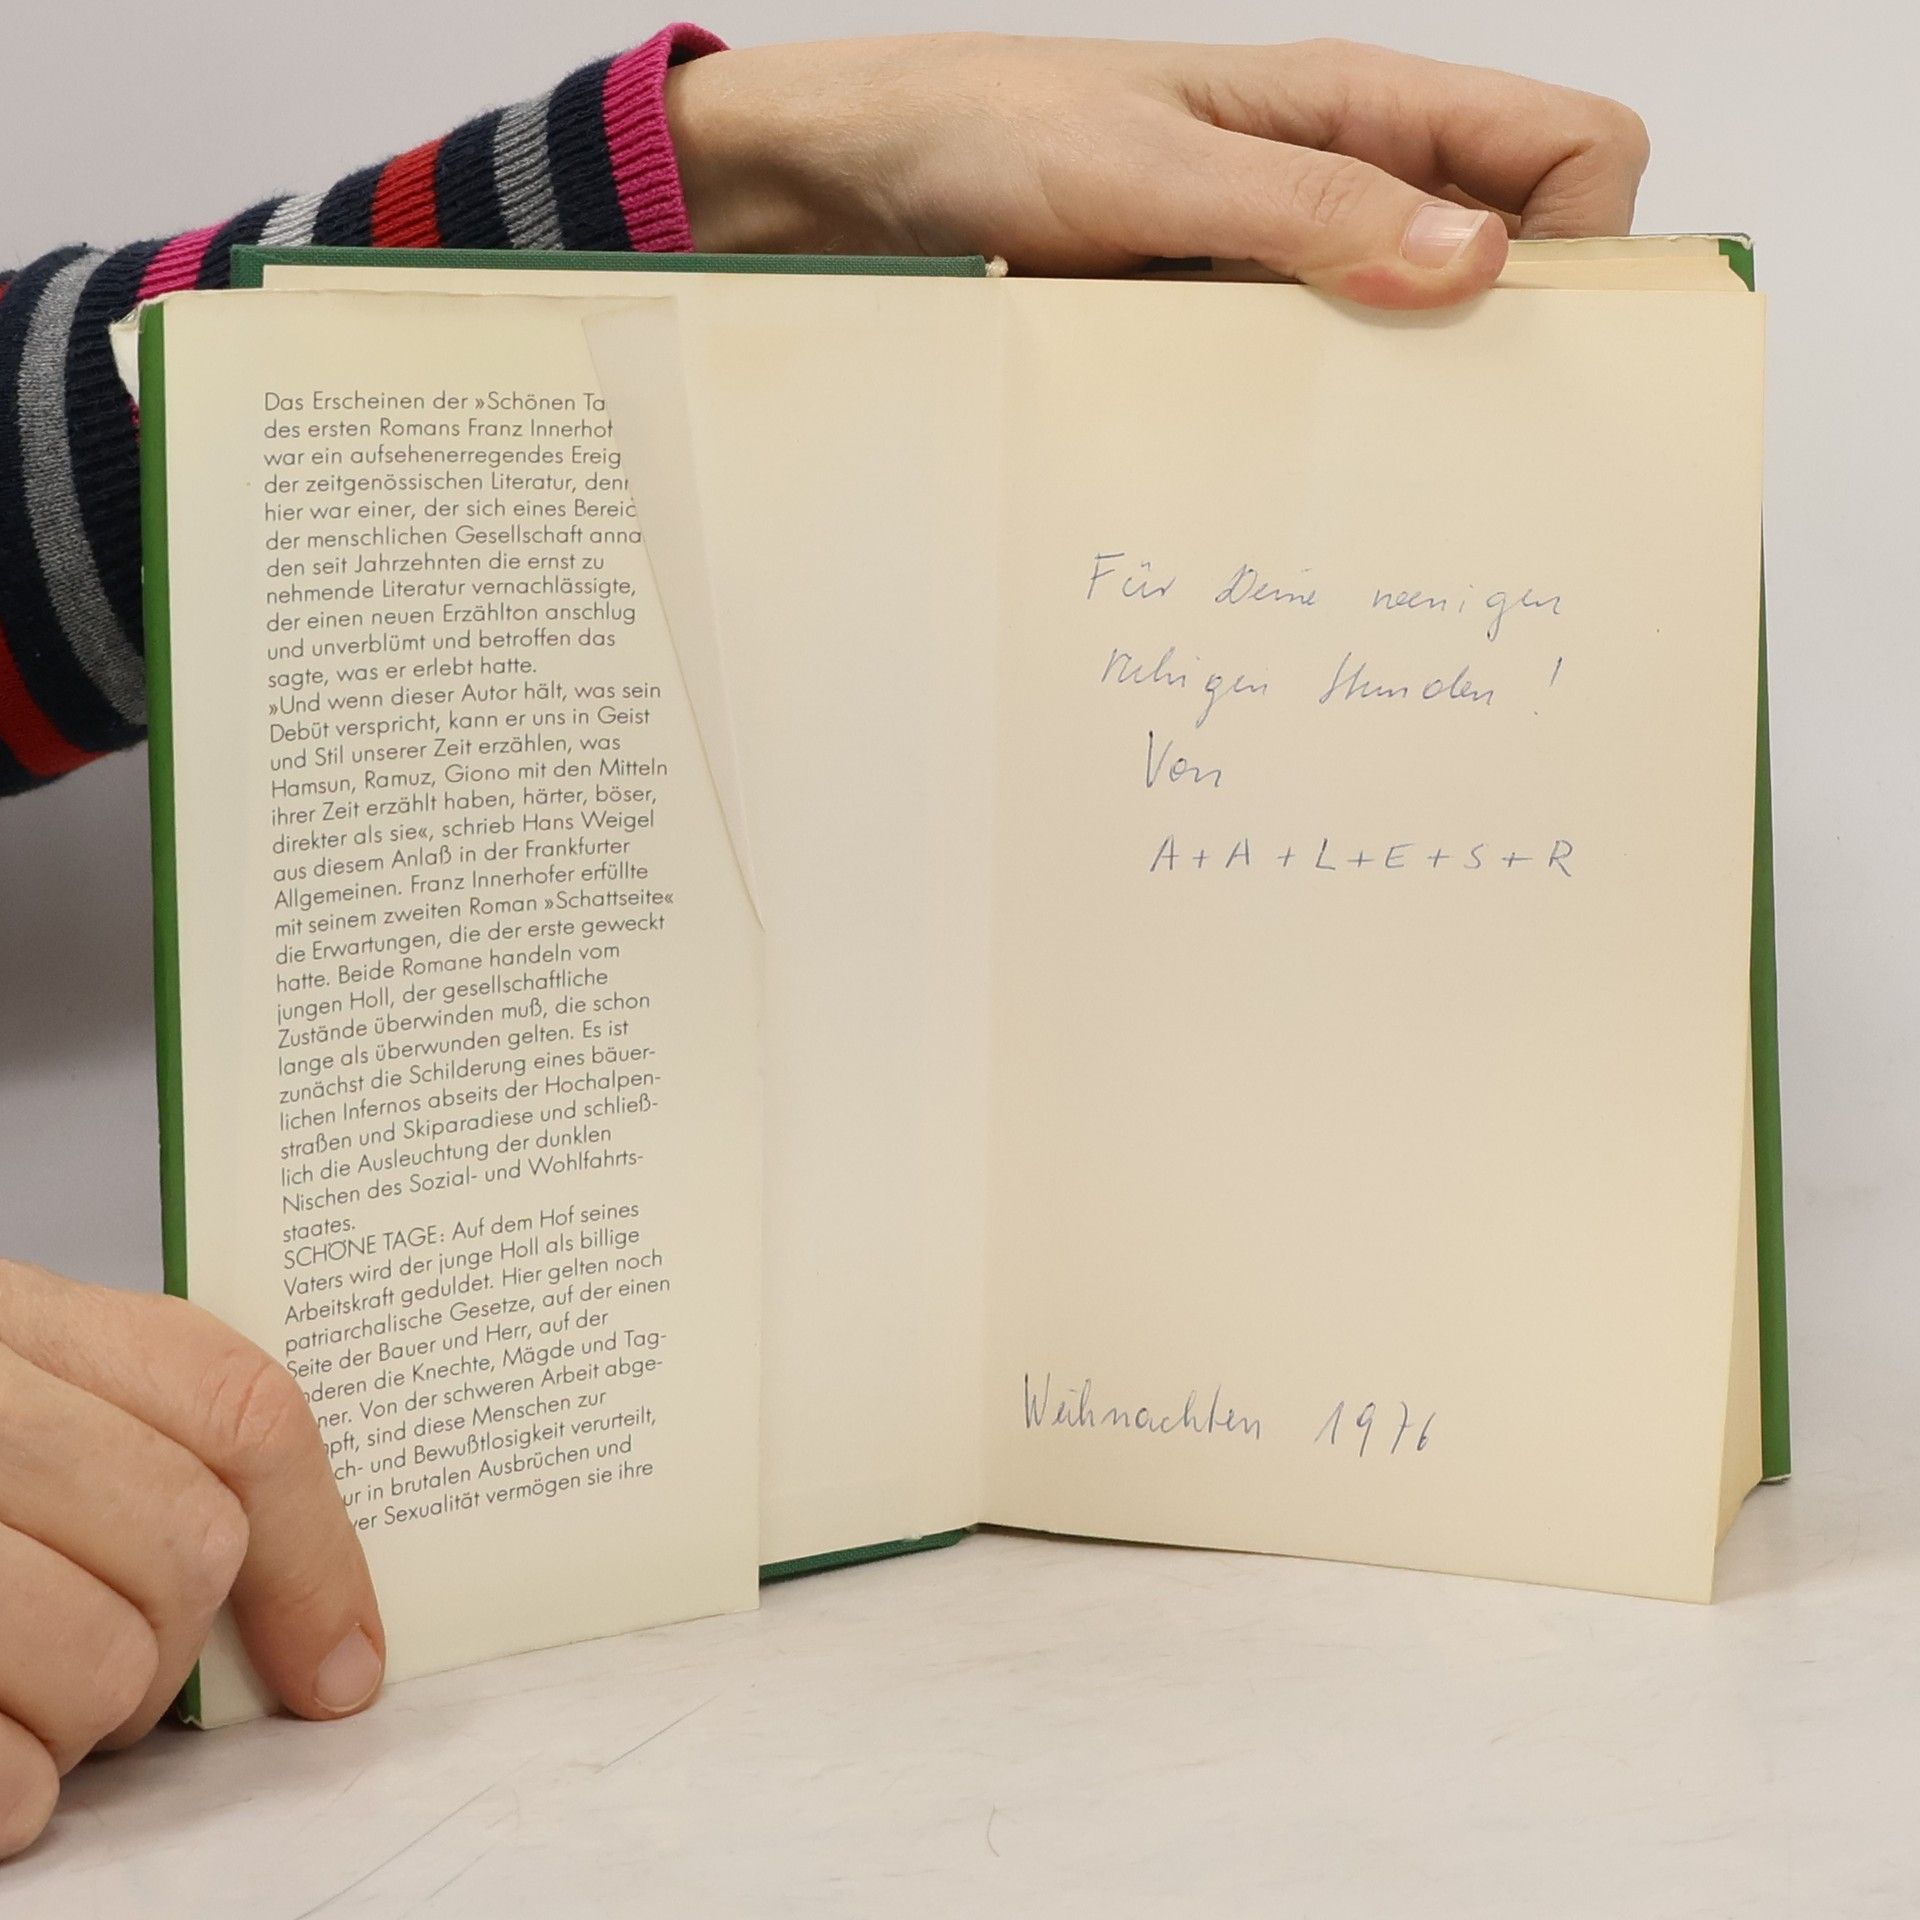 Das Erscheinen der »Schönen Ta
des ersten Romans Franz Innerhof
war ein aufsehenerregendes Ereig
der zeitgenössischen Literatur, denn
hier war einer, der sich eines Bereic
der menschlichen Gesellschaft anna
den seit Jahrzehnten die ernst zu
nehmende Literatur vernachlässigte,
der einen neuen Erzählton anschlug
und unverblümt und betroffen das
sagte, was er erlebt hatte.
»Und wenn dieser Autor hält, was sein
Debüt verspricht, kann er uns in Geist
und Stil unserer Zeit erzählen, was
Hamsun, Ramuz, Giono mit den Mitteln
ihrer Zeit erzählt haben, härter, böser,
direkter als sie«, schrieb Hans Weigel
aus diesem Anlaß in der Frankfurter
Allgemeinen. Franz Innerhofer erfüllte
mit seinem zweiten Roman »Schattseite«
die Erwartungen, die der erste geweckt
hatte. Beide Romane handeln vom
jungen Holl, der gesellschaftliche
Zustände überwinden muß, die schon
lange als überwunden gelten. Es ist
zunächst die Schilderung eines bäuer-
lichen Infernos abseits der Hochalpen-
straßen und Skiparadiese und schließ-
lich die Ausleuchtung der dunklen
Nischen des Sozial- und Wohlfahrts-
staates.
SCHÖNE TAGE: Auf dem Hof seines
Vaters wird der junge Holl als billige
Arbeitskraft geduldet. Hier gelten noch
patriarchalische Gesetze, auf der einen
Seite der Bauer und Herr, auf der
nderen die Knechte, Mägde und Tag-
ner. Von der schweren Arbeit abge-
pft, sind diese Menschen zur
ch- und Bewußtlosigkeit verurteilt,
ur in brutalen Ausbrüchen und
ver Sexualität vermögen sie ihre
Für Deine wenigen
ruhigen Stunden!
Von
A+A+L+E+S+R
Weihnachten 1976